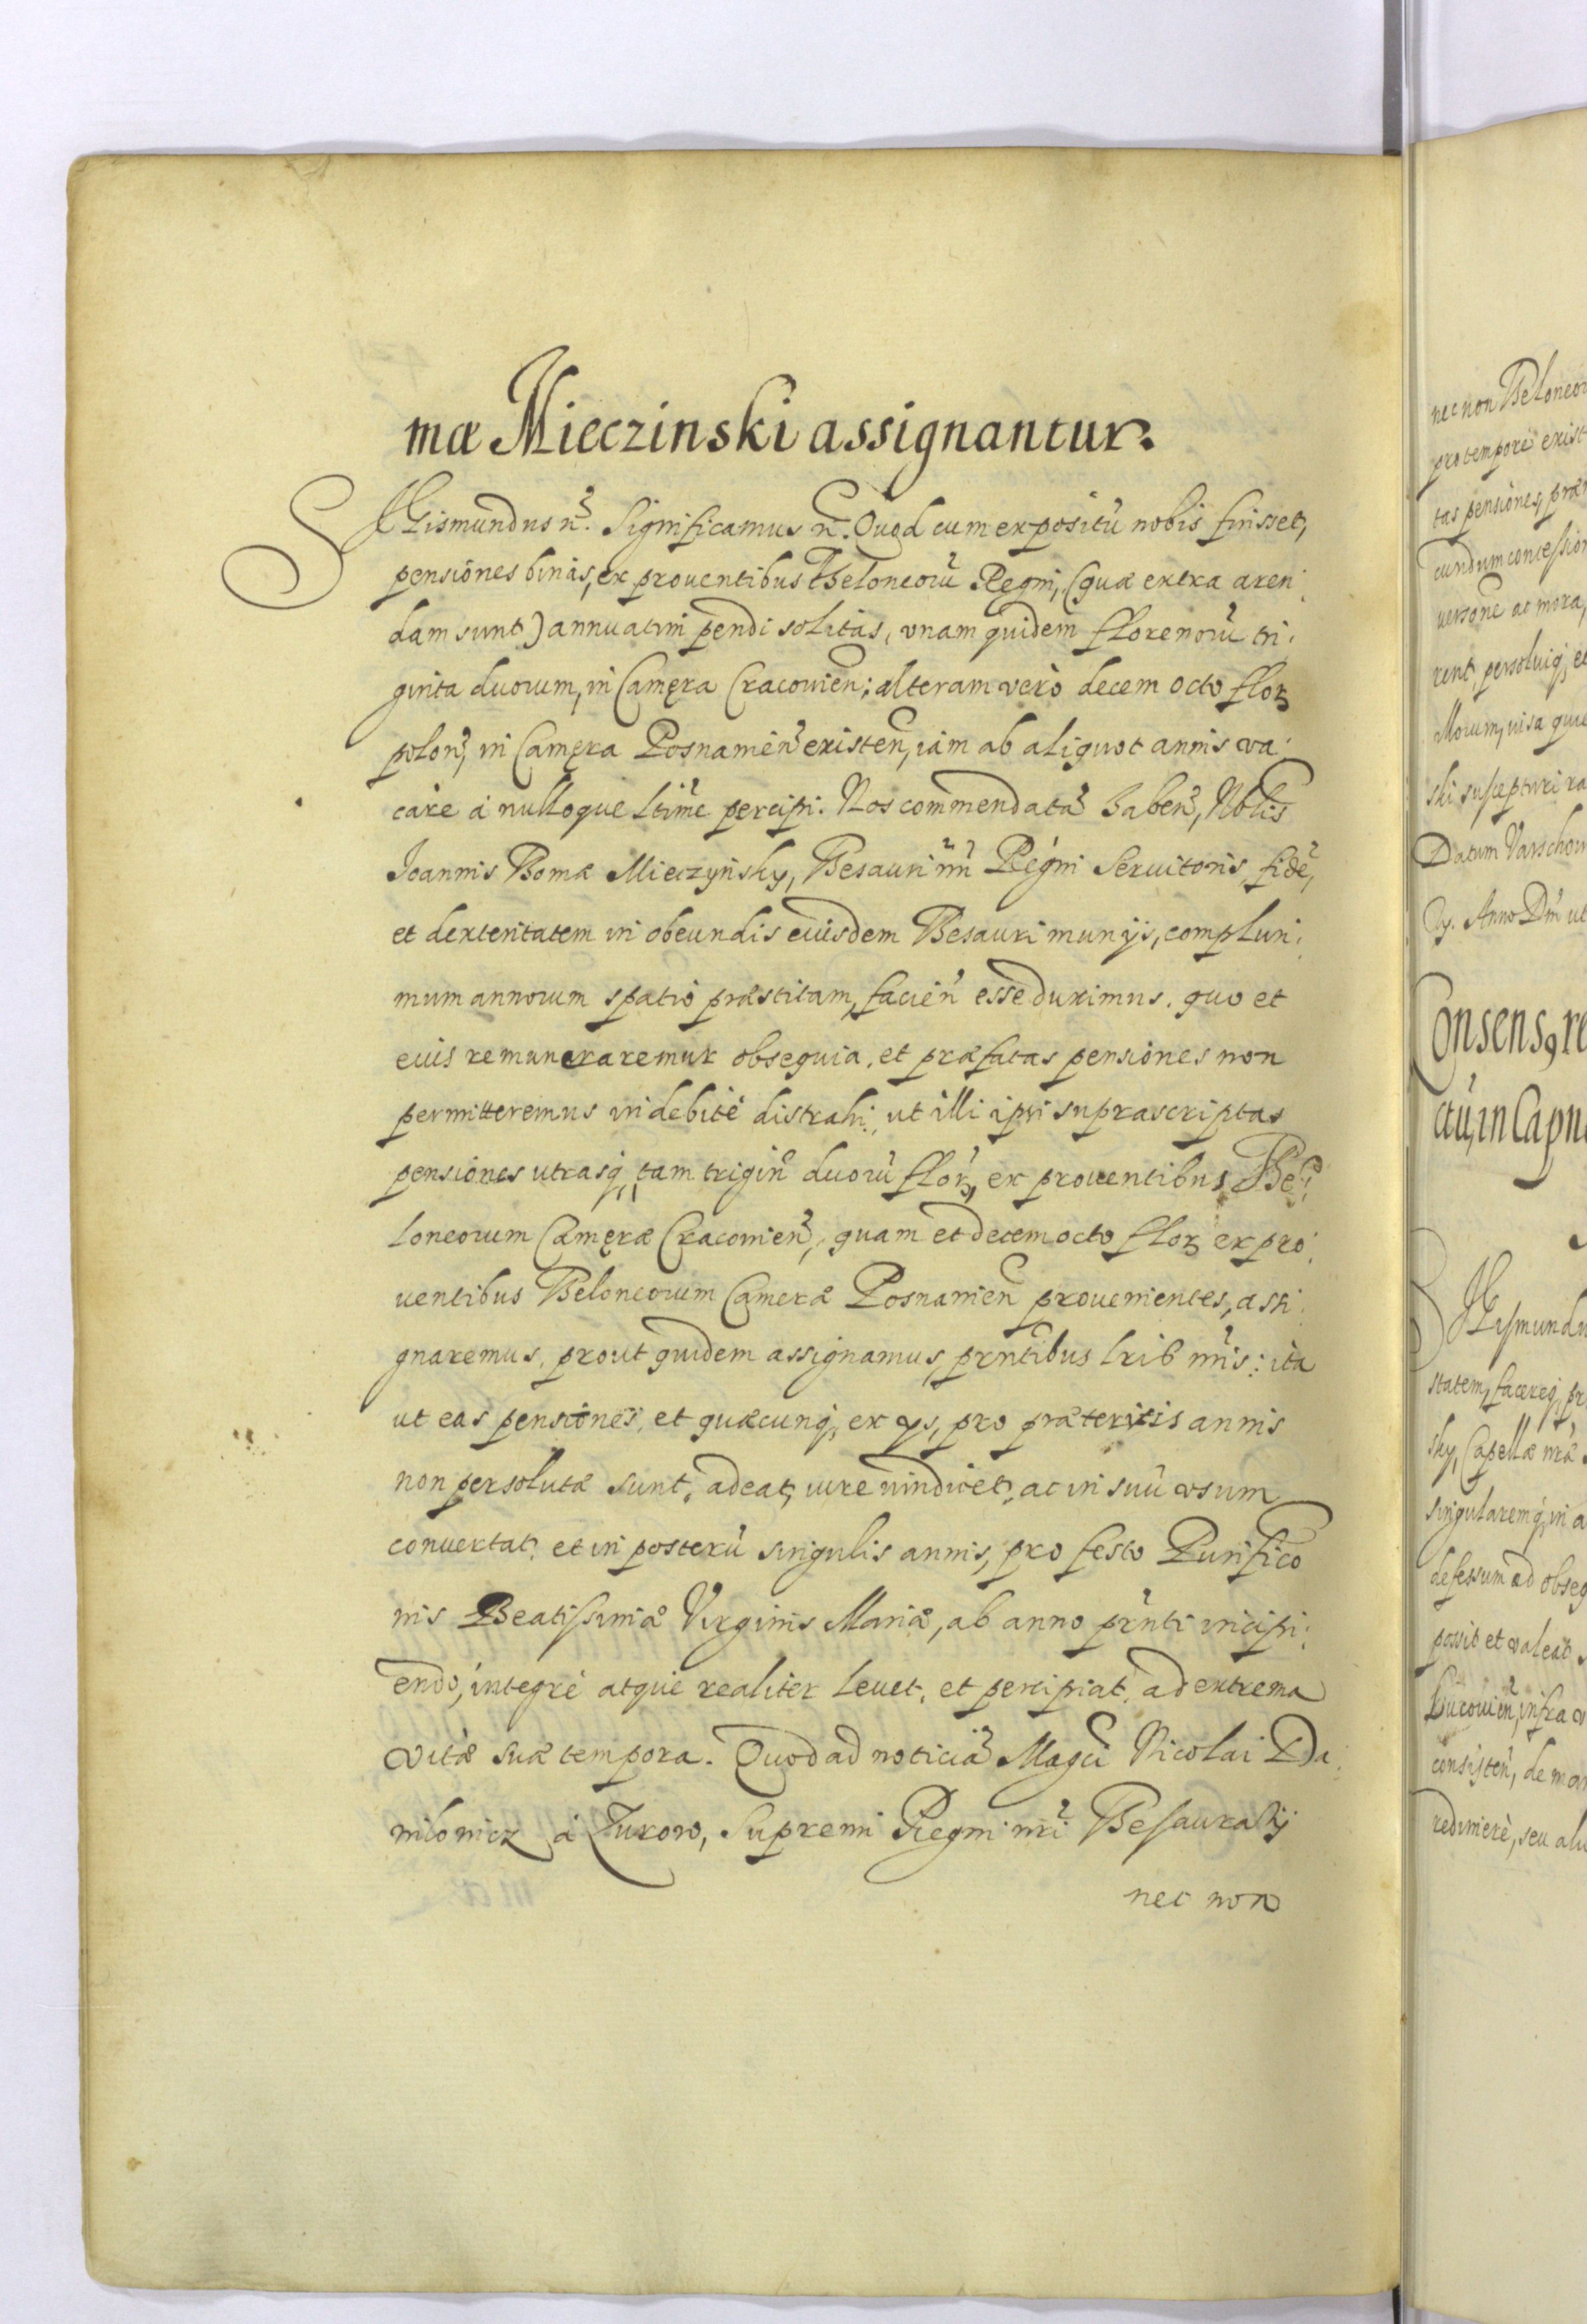 mæ Mieczinski assignantur.
SIGismundus n̄. Significamus n̄. Quod cum expositū nobis fuisset,
pensiones binas, ex prouentibus Theloneorū Regni, (quæ extra aren
dam sunt) annuatim pendi solitas, vnam quidem florenorū tri
ginta duorum, in Camera Cracouien: alteram verò decem octo flor
polon, in Camera Posnamien existen, iam ab aliquot annis va
care à nulloque ltime percipi. Nos commendatā haben, Nblis
Joannis Thomæ Mieczynsky, Thesauri nri Regni Seruitoris, fidē,
et dexteritatem in obeundis eiusdem Thesauri munijs, compluri
mum annorum spatio præstitam, facien esse duximus. quo et
eius remuneraremur obsequia, et præfatas pensiones non
permitteremus indebitè distrahi, ut illi ipsi suprascriptas
pensiones utrasq, tam trigin duorū flor, ex prouentibus The
loneorum Cameræ Cracouien, quam et decem octo flor ex pro
uentibus Theloneorum Cameræ Posnanien prouenientes, assi
gnaremus, prout quidem assignamus, prntibus lrib nris: ita
ut eas pensiones, et quæcunq, ex ijs, pro præteritis annis
non persolutæ sunt, adeat, iure vindicet, ac in suū vsum
conuertat, et in posterū singulis annis, pro festo Purifico
nis Beatissimæ Virginis Mariæ, ab anno prnti incipi
endo, integrè atque realiter leuet, et percipiat, ad extrema
vitæ suæ tempora. Quod ad noticiā Magci Nicolai Da
nilowicz à Zurow, Supremi Regni nri Thesaurarij
nec non
nec non Theloneor
pro tempore exist
tas pensiones, præ
cundum concession
uersone ac mora,
rent, persoluiq, et
illorum, visa quie
ski suscepturi ra
Datum Varschou
Anno Dni ut
Consensq re
ctū, in Capn
SIGismundu
statem, facereq pr
sky, Capellæ nræ
singularemq, in a
defessum ad obseq
possit et valeat
Lucouien, infra
consisten, de man
redimere, seu